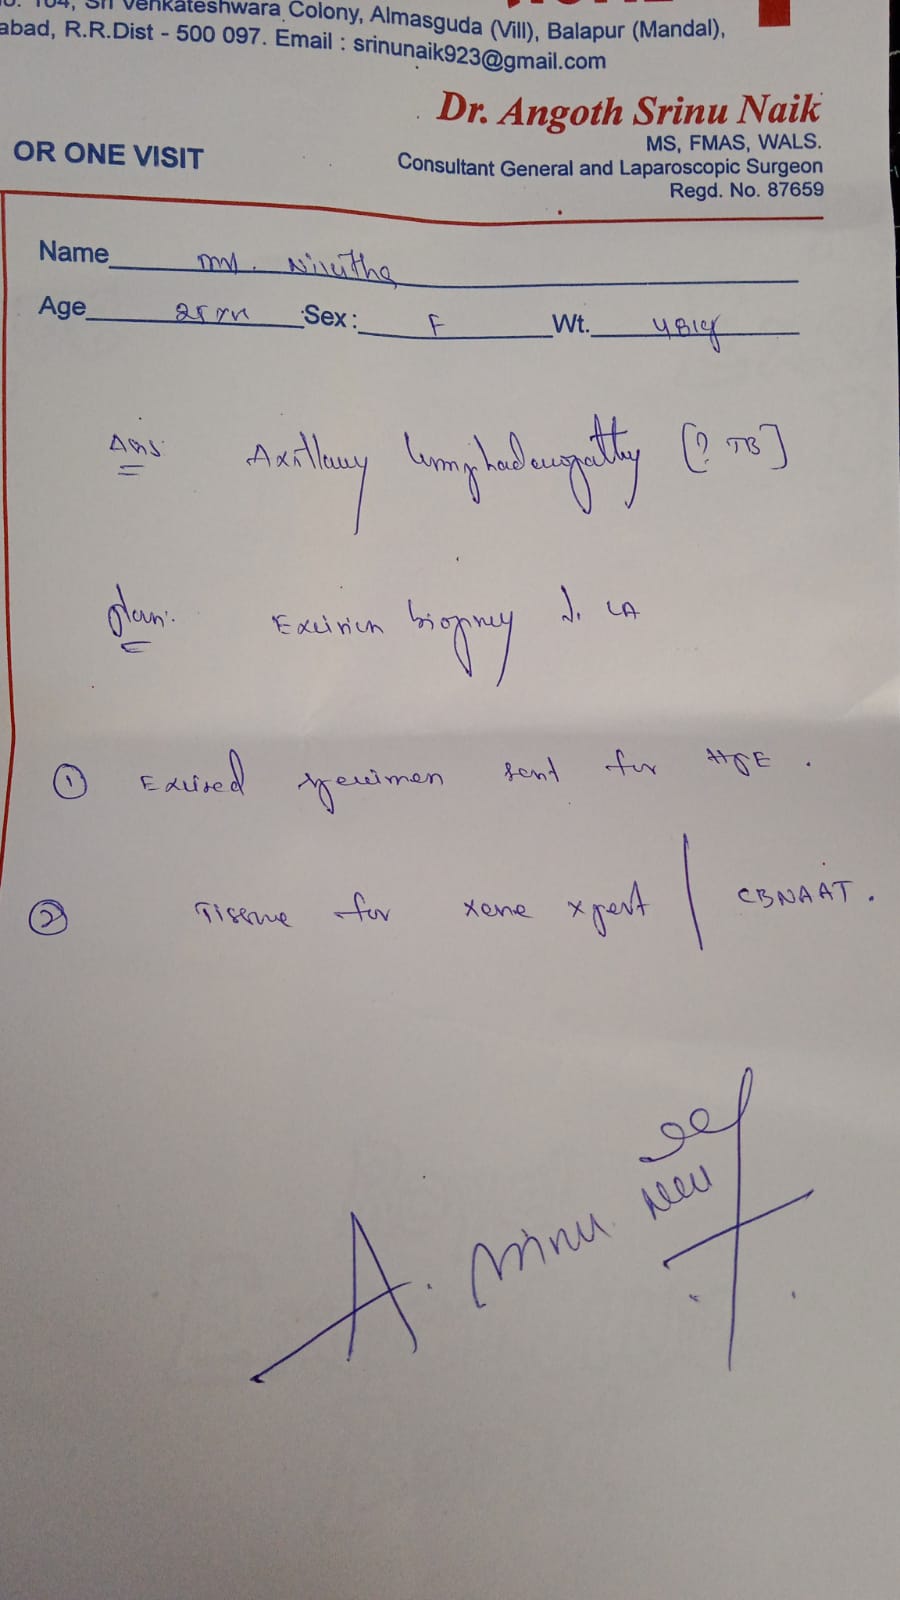 104, Sri Venkateshwara Colony, Almasguda (Vill), Balapur (Mandal),
abad, R.R.Dist - 500 097. Email : srinunaik923@gmail.com
Dr. Angoth Srinu Naik
MS, FMAS, WALS.
OR ONE VISIT
Consultant General and Laparoscopic Surgeon
Regd. No. 87659
Name
Age Sex: F Wt.
Axillary lymphadenopathy [? TB]
plan: Excision biopsy LA
① Excised specimen sent for HPE.
② Tissue for xene xpert / CBNAAT.
A. Srinu